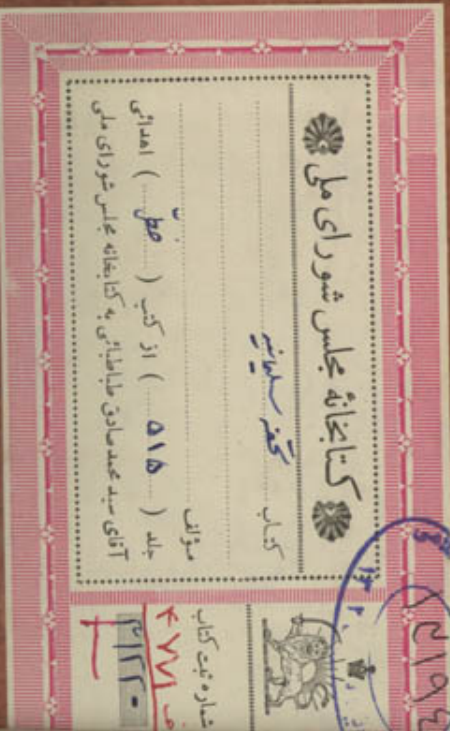 کتابخانهٔ مجلس شورای ملی
کتاب تحفه سلیمانیه
مؤلف
جلد ( ۵۱۵ ) از کتب ( خطی ) اهدائی
آقای سید محمد صادق طباطبائی به کتابخانه مجلس شورای ملی
شماره ثبت کتاب